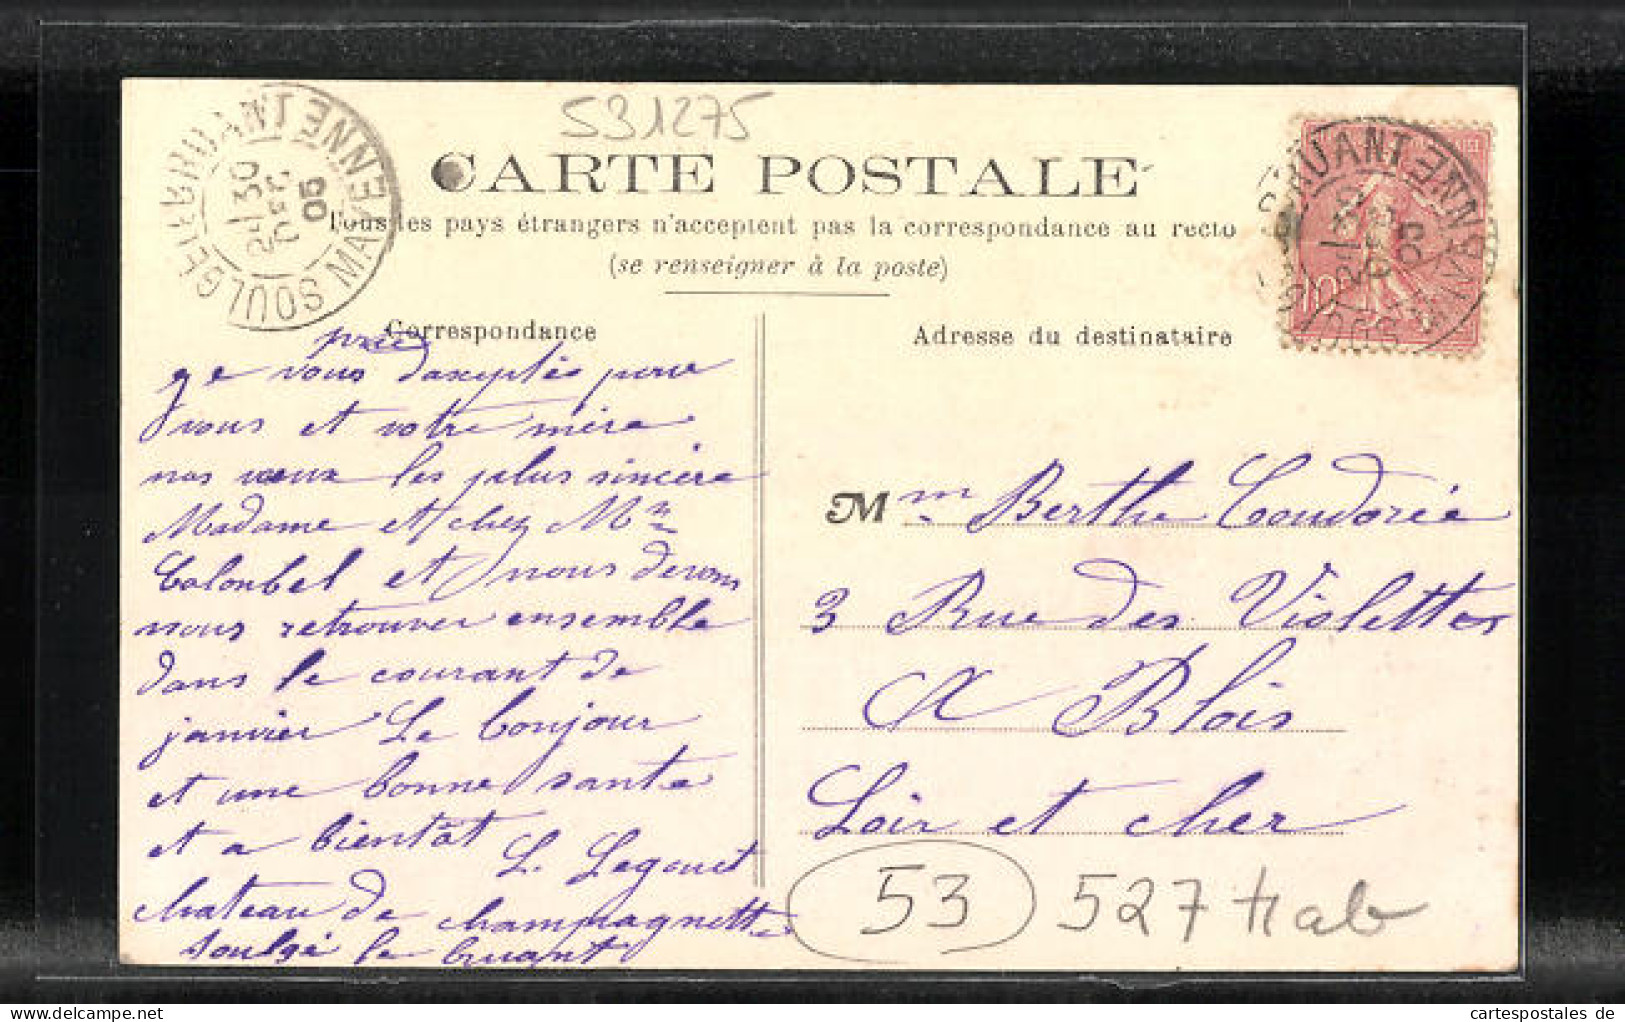 531275
CARTE POSTALE
Tous les pays étrangers n'acceptent pas la correspondance au recto
(se renseigner à la poste)
SOULGE-LE-BRUANT MAYENNE
21 30
DEC
05
BRUANT MAYENNE
Correspondance
Adresse du destinataire
prie
ge vous daxeptés pour
vous et votre mère
nos vœux les plus sincère
Madame et chez Mr
Colonbel et nous devons
nous retrouver ensemble
dans le courant de
janvier Le bonjour
et une bonne santé
et a bientôt L. Legouet
chateau de champagnette
Soulgé le bruant
M me Berthe Coudorée
3 Rue des Violettes
A Blois
Loir et cher
53 527 hab
cartespostales de